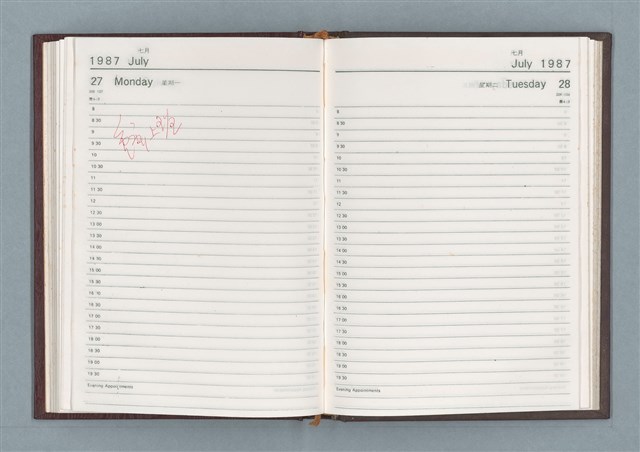 七月
1987 July
27 Monday 星期一
8
8 30
9
9 30
10
10 30
11
11 30
12
12 30
13 00
13 30
14 00
14 30
15 00
15 30
16 00
16 30
17 00
17 30
18 00
18 30
19 00
19 30
Evening Appointments
七月
July 1987
星期二 Tuesday 28
8
8 30
9
9 30
10
10 30
11
11 30
12
12 30
13 00
13 30
14 00
14 30
15 00
15 30
16 00
16 30
17 00
17 30
18 00
18 30
19 00
19 30
Evening Appointments